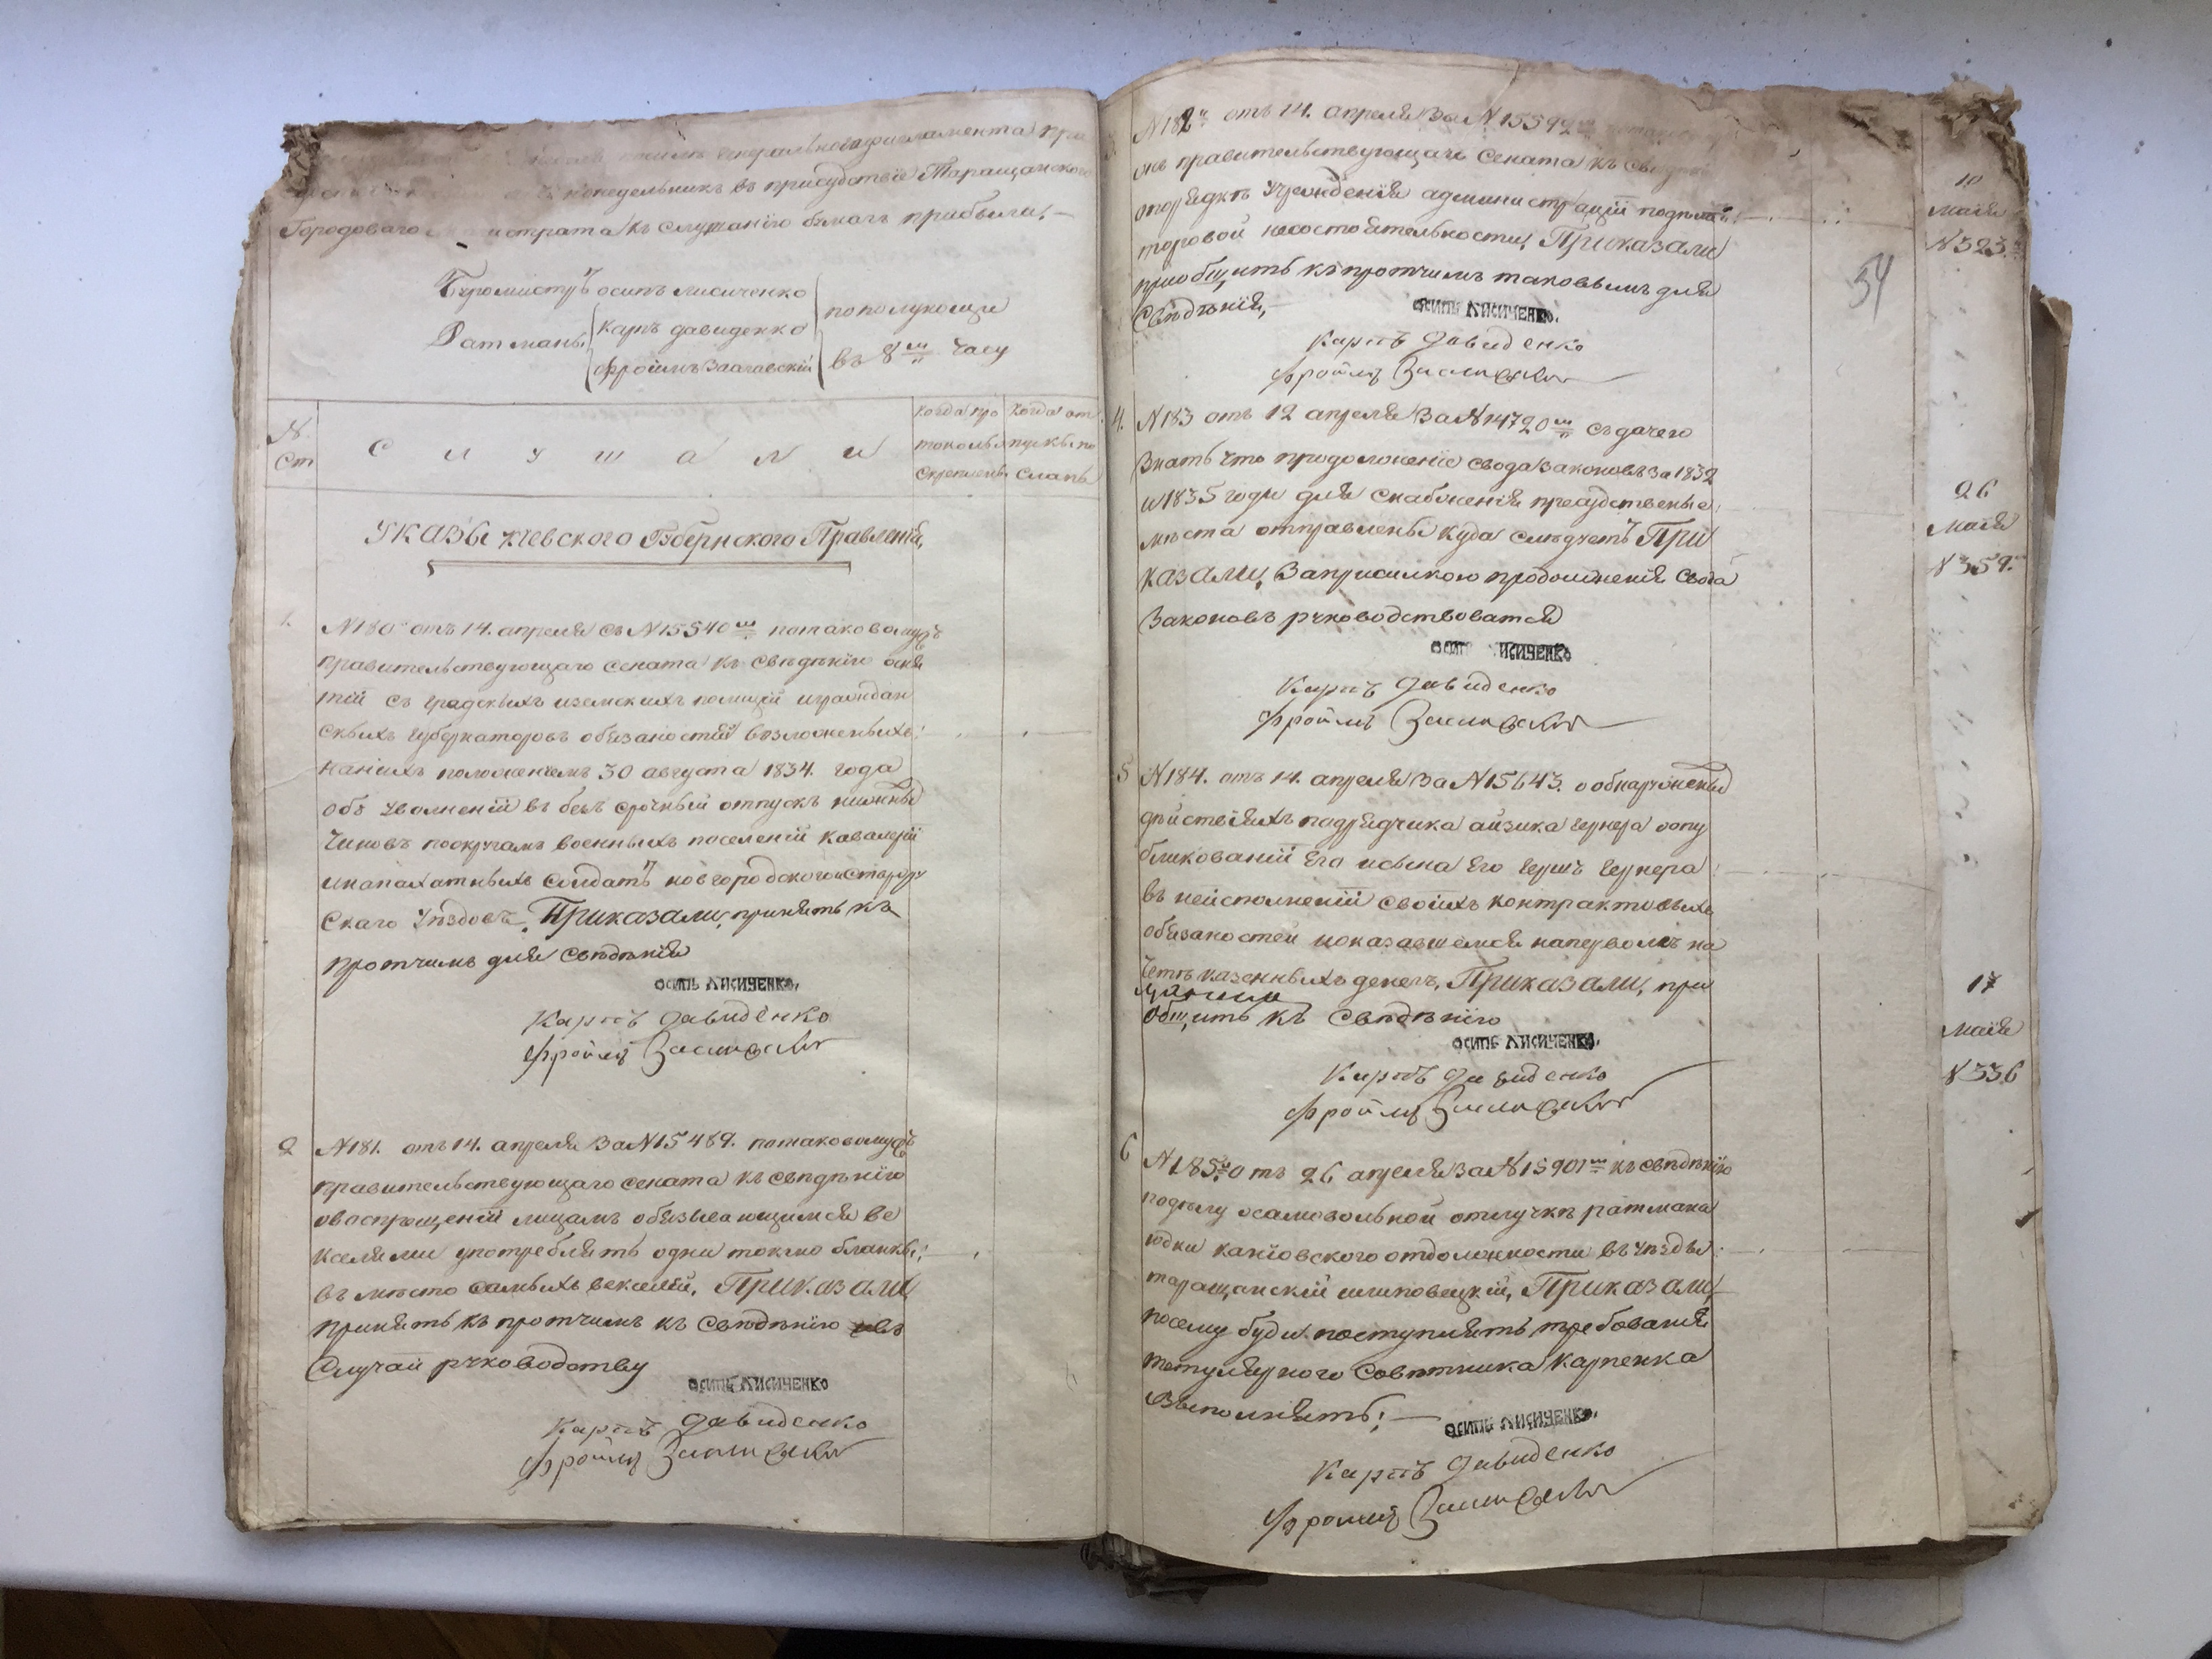 генеральнаго регламента при
понедельникъ въ присудствіе Таращанского
Городоваго истрата къ слушанію бумагъ прибыли,
Бурмистръ осипъ лисиченко
Ратманы карпъ давиденко
фроимъ Заславскій
пополуночи
въ 8 м часу
№ Ст
С л у ш а л и
когда про токолъ скрепленъ
когда от пускъ по сланъ
Указы кіевского Губернского Правленія,
1. №180 отъ 14. апреля съ №15540 м потаковому
правительствующаго сената къ сведенію осня
тіи съ градскихъ иземскихъ полиціи играждан
скихъ губернаторовъ обязаностей возложенныхъ
нанихъ положенiемъ 30 августа 1834. года
объ уволненіи въ безъ срочный отпускъ нижныхъ
чиновъ поокругамъ военныхъ поселеній кавалеріи
инапахатныхъ солдатъ новгородского истарору
скаго уѣздовъ, Приказали, принять къ
протчимъ для сведенія
осипъ лисиченко.
Карпъ Давиденко
Фроимъ Заславскій
2 №181. отъ 14. апреля за №15489. потаковому
правительствующаго сената къ сведенію
овоспрещеніи лицамъ обязывающимся ве
кселями употреблять одни токмо бланки
въ место самыхъ векселей, Приказали
принять къ протчимъ къ сведенію
случаи руководству
осипъ лисиченко
Карпъ Давиденко
Фроимъ Заславскій
№182 отъ 14. апреля за №15592
правительствующаго сената къ
опорядкѣ учрежденія администрацій подѣламъ
торговой несостоятельности, Приказали
приобщить къ протчимъ таковымъ для
сведенія,
осипъ лисиченко.
Карпъ Давиденко
Фроимъ Заславскій
10
маія
№323.
54
4. №183 отъ 12 апреля за №14720 м съ дачего
знать что продолженіе свода законовъ за 1832
и 1835 годы для снабженія присудственые
места отправлены куда следуетъ При
казали, заприсилкою продолженія свода
законовъ руководствоватся
осипъ лисиченко
Карпъ Давиденко
Фроимъ Заславскій
26
маія
№359.
5 №184. отъ 14. апреля за №15643. ообнаружены
дѣйствіяхъ подрядчика айзика гернера оопу
бликованіи его исына его герша гернера
въ неисполненіи своихъ контрактовыхъ
обязаностей показавшемся наперволъ на
четѣ казенныхъ денегъ, Приказали, при
общить къ сведенію
осипъ лисиченко.
Карпъ Давиденко
Фроимъ Заславскій
17
маія
№336
6 №185 отъ 26 апреля за №15901 м къ сведенію
поделу осамовольной отлучкѣ ратмана
юдки каніовского отдолжности въ уезды
таращанскій илиповецкій, Приказали,
посему буди поступлять требованія
тетулярного советника карпенка
выполнять;
осипъ лисиченко.
Карпъ Давиденко
Фроимъ Заславскій